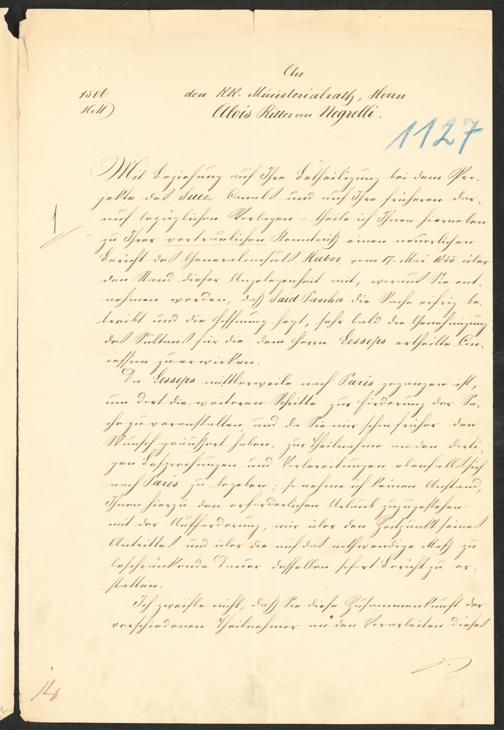 An
1806
den KK. Ministerialrath, Herrn
HM)
Alois Ritter von Negrelli.
1127
Mit Beziehung auf Ihre Betheiligung bei dem Pro-
jekte des Suez Canals und auf Ihre früheren dar-
auf bezüglichen Vorlagen – theile ich Ihnen hierneben
zu Ihrer vertraulichen Kenntniß einen neuerlichen
Bericht des Generalconsuls Huber vom 17. Mai 1855 über
den Stand dieser Angelegenheit mit, woraus Sie ent-
nehmen werden, daß Said Pascha die Sache eifrig be-
treibt und die Hoffnung hegt, sehr bald die Genehmigung
des Sultans für die dem Herrn Lesseps ertheilte Con-
cession zu erwirken.
Da Lesseps mittlerweile nach Paris gegangen ist,
um dort die weiteren Schritte zur Förderung der Sa-
che zu veranstalten, und da Sie mir schon früher den
Wunsch geäußert haben, zur Theilnahme an den dorti-
gen Besprechungen und Vorbereitungen ebenfalls sich
nach Paris zu begeben; so nehme ich keinen Anstand,
Ihnen hierzu den erforderlichen Urlaub zuzugestehen
mit der Aufforderung, mir über den Zeitpunkt seines
Antrittes und über die auf das nothwendige Maß zu
beschränkende Dauer desselben sofort Bericht zu er-
statten.
Ich zweifle nicht, daß Sie diese Zusammenkunft der
verschiedenen Theilnehmer an den Vorarbeiten dieses